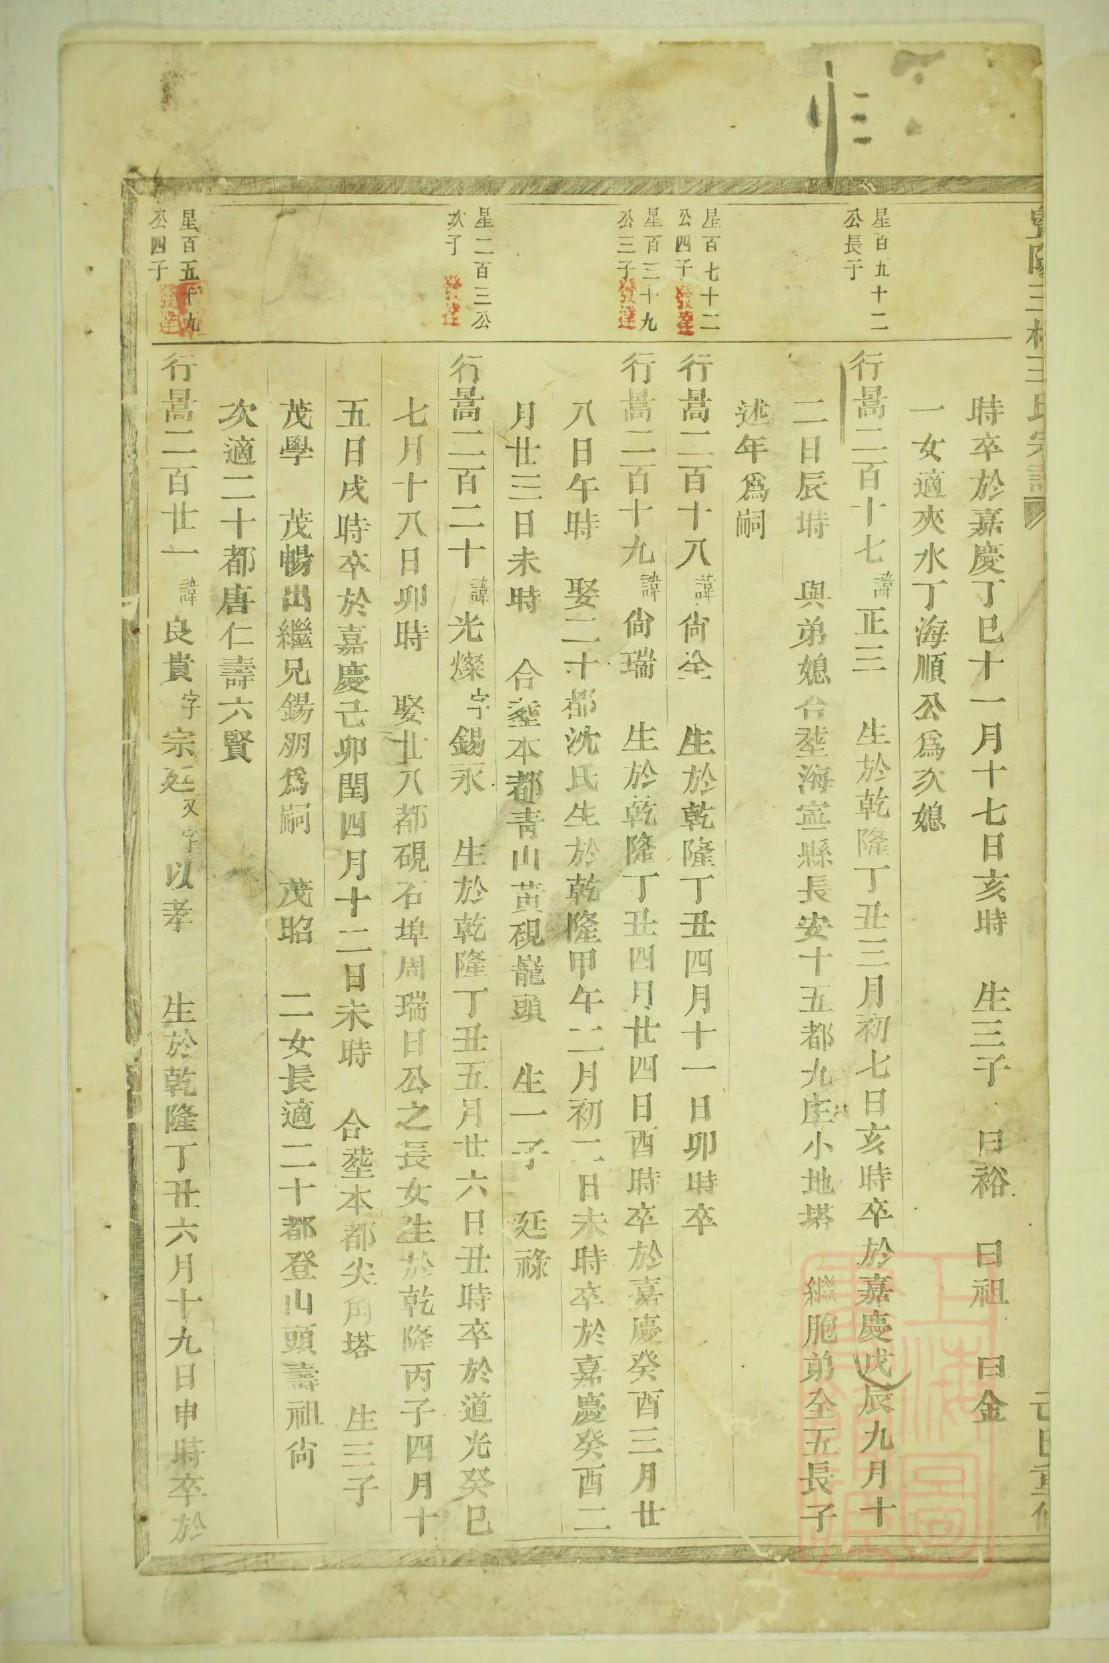 時卒於嘉慶丁巳十一月十七日亥時　生三子　曰裕　曰祖　曰金
一女適夾水丁海順公爲次媳
星百九十二
公長子
行暠二百十七諱正三　生於乾隆丁丑三月初七日亥時卒於嘉慶戊辰九月十
二日辰時　與弟媳合塟海寧縣長安十五都九庄小地塔　繼胞弟全五長子
述年爲嗣
星百七十二
公四子發達
行暠二百十八諱尙全　生於乾隆丁丑四月十一日卯時卒
星百三十九
公三子發達
行暠二百十九諱尙瑞　生於乾隆丁丑四月廿四日酉時卒於嘉慶癸酉三月廿
八日午時　娶二十都沈氏生於乾隆甲午二月初二日未時卒於嘉慶癸酉二
月廿三日未時　合塟本都靑山黃硯巃頭　生一子　廷祿
星二百三公
次子　發達
行暠二百二十諱光燦字錫永　生於乾隆丁丑五月廿六日丑時卒於道光癸巳
七月十八日卯時　娶廿八都硯石埠周瑞日公之長女生於乾隆丙子四月十
五日戌時卒於嘉慶己卯閏四月十二日未時　合塟本都尖角塔　生三子
茂學　茂暢出繼兄錫朋爲嗣　茂昭　二女長適二十都登山頭壽祖尙
次適二十都唐仁壽六賢
星百五十九
公四子發達
行暠二百廿一諱良貴字宗廷又字以孝　生於乾隆丁丑六月十九日申時卒於
上海圖